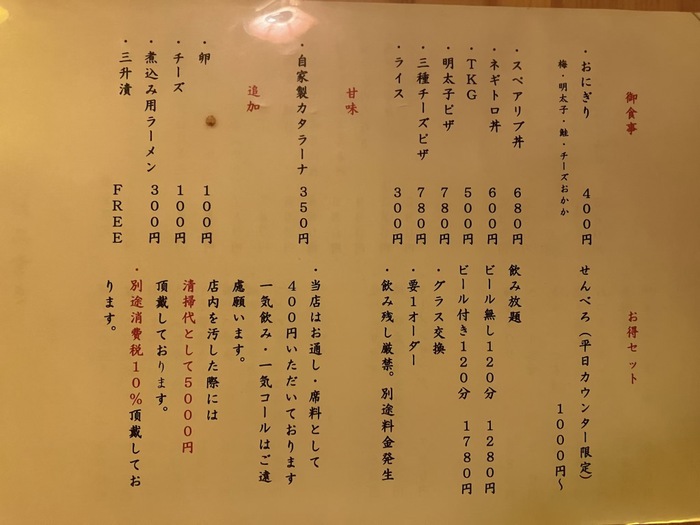 御食事
・おにぎり 400円
梅・明太子・鮭・チーズおかか
・スペアリブ丼 680円
・ネギトロ丼 600円
・TKG 500円
・明太子ピザ 780円
・三種チーズピザ 780円
・ライス 300円
甘味
・自家製カタラーナ 350円
追加
・卵 100円
・チーズ 100円
・煮込み用ラーメン 300円
・三升漬 FREE
お得セット
せんべろ(平日カウンター限定)
1000円〜
飲み放題
ビール無し120分 1280円
ビール付き120分 1780円
・グラス交換
・要1オーダー
・飲み残し厳禁。別途料金発生
・当店はお通し・席料として
400円いただいております
一気飲み・一気コールはご遠
慮願います。
店内を汚した際には
清掃代として5000円
頂戴しております。
・別途消費税10%頂戴してお
ります。